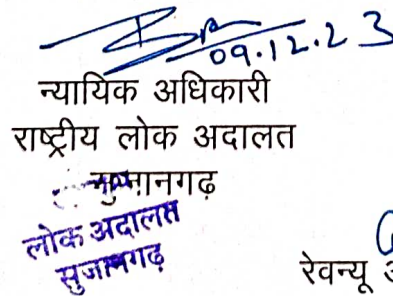 09.12.23
न्यायिक अधिकारी
राष्ट्रीय लोक अदालत
सुजानगढ़
लोक अदालत
सुजानगढ़
रेवन्यू